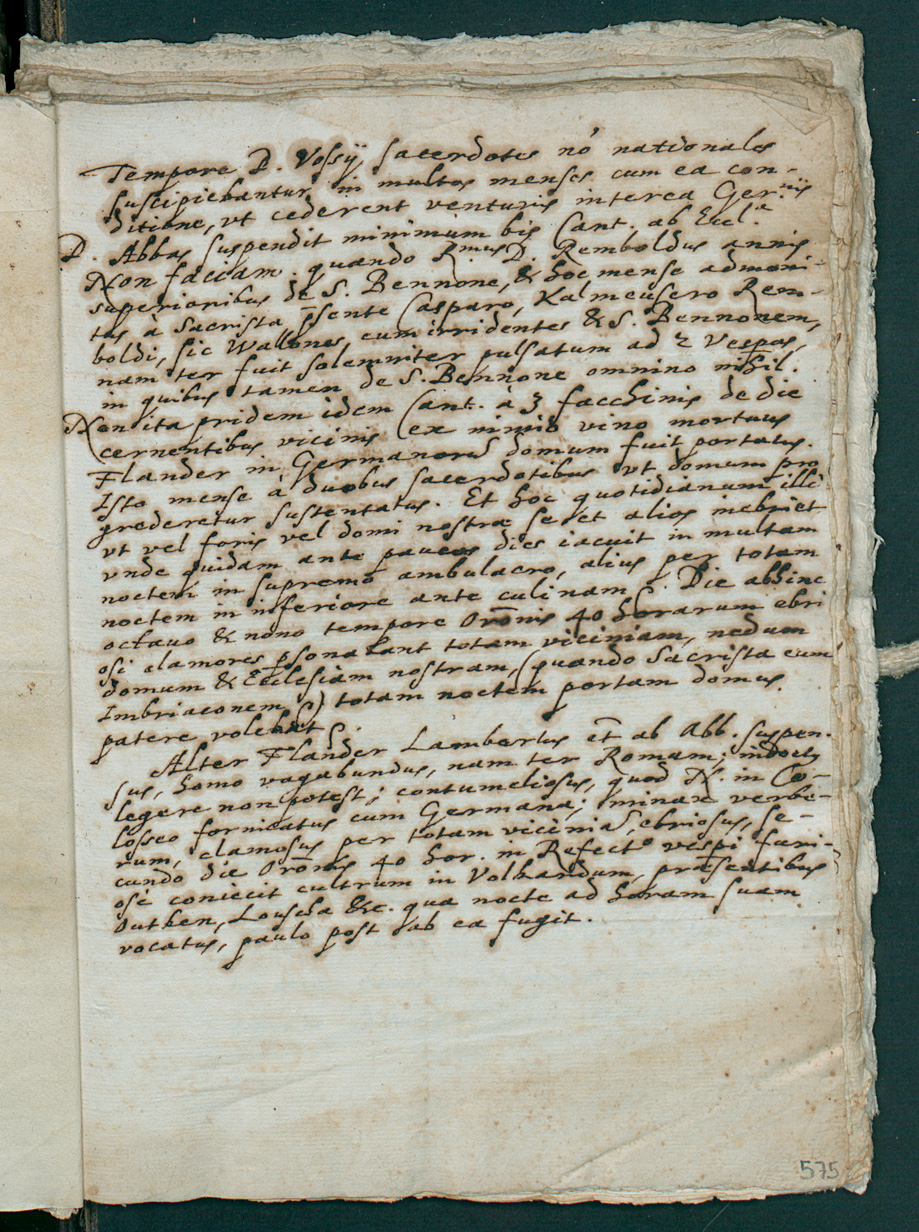 Tempore D. Vossÿ, sacerdotes nō nationales
suscipiebantur in multos menses cum ea con-
ditione, ut cederent venturis interea Ger:nis
D. Abbas suspendit minimum bis Cant. ab Eccl.a
Non faciam. quando R.mus D. Remboldus annis
superioribus de S. Bennone, & hoc mense admoni-
tus a Sacrista p̄sente Casparo, Kalmeusero Rem-
boldi, sic Wallones eum irridentes & S. Bennonem,
nam ter fuit solemniter pulsatum ad 2 Vesp̄as,
in quibus tamen de S. Bennone omnino nihil.
Non ita pridem idem Cant. à 3 facchinis de die
(cernentibus vicinis (ex nimio vino mortuus
Flander in Germanorū domum fuit portatus.
Isto mense à duobus sacerdotibus ut domum pro
grederetur sustentatus. Et hoc quotidianum illi
ut vel foris vel domi nostræ se et alios inebriet
unde quidam ante paucos dies iacuit in multam
noctem in supremo ambulacro, alius per totam
noctem in inferiore ante culinam. Die abhinc
octauo & nono tempore Orōnis 40 horarum ebri
osi clamores p̄sonabant totam viciniam, nedum
domum & Ecclesiam nostram, (quando Sacrista eum
Imbriaconem) totam noctem portam domus
patere volebat.
Alter Flander Lambertus et̄ ab Abb. suspen.
sus, homo vagabundus, nam ter Romam; indoctus
legere non potest; contumeliosus, quod N. in Co-
losseo fornicatus cum Germana; minax verbe-
rum, clamosus per totam viciniā, ebriosus, se-
cundo die Orōnis 40 hor. in Refect.o vesp̄i furi-
osè coniecit cultrum in Volbandum, præsentibus
Outhen, Louscha &c. qua nocte ad horam suam
vocatus, paulo post ab ea fugit.
575